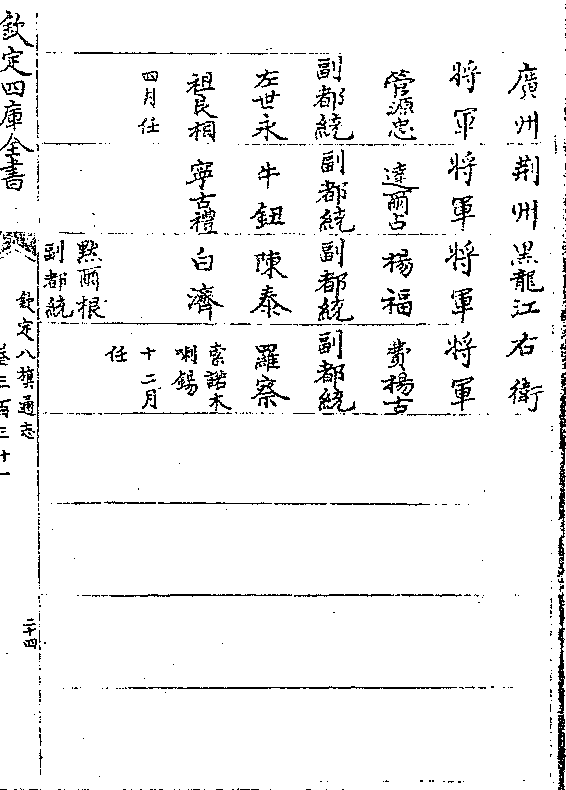 廣州 荆州 黑龍江 右衛
將軍 將軍 將軍 將軍
管源忠 達爾占 楊福 費揚古
副都統 副都統 副都統 副都統
左世永 牛鈕 陳泰 羅察
祖良相 寧古禮 白濟 索諾木喇錫
四月任 十二月任
默爾根
副都統
欽定八旗通志
卷三百三十一
二十四
欽定四庫全書